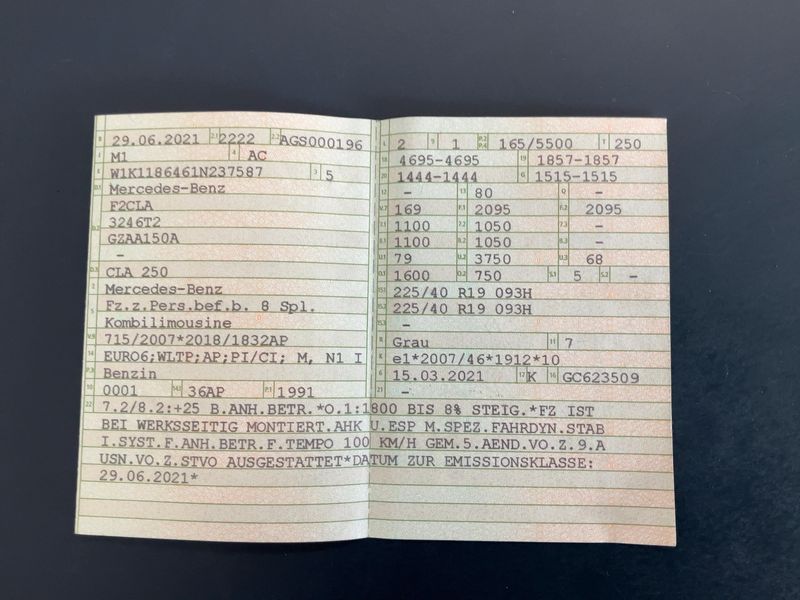 B 29.06.2021 2.1 2222 2.2 AGS000196
J M1 4 AC
E W1K1186461N237587 3 5
D.1 Mercedes-Benz
F2CLA
D.2 3246T2
GZAA150A
–
D.3 CLA 250
2 Mercedes-Benz
5 Fz.z.Pers.bef.b. 8 Spl.
Kombilimousine
V.9 715/2007*2018/1832AP
14 EURO6;WLTP;AP;PI/CI; M, N1 I
P.3 Benzin
10 0001 14.1 36AP P.1 1991
L 2 9 1 P.2 P.4 165/5500 T 250
18 4695-4695 19 1857-1857
20 1444-1444 G 1515-1515
12 – 13 80 Q –
V.7 169 F.1 2095 F.2 2095
7.1 1100 7.2 1050 7.3 –
8.1 1100 8.2 1050 8.3 –
U.1 79 U.2 3750 U.3 68
O.1 1600 O.2 750 S.1 5 S.2 –
15.1 225/40 R19 093H
15.2 225/40 R19 093H
15.3 –
R Grau 11 7
K e1*2007/46*1912*10
6 15.03.2021 17 K 16 GC623509
21 –
22 7.2/8.2:+25 B.ANH.BETR.*O.1:1800 BIS 8% STEIG.*FZ IST
BEI WERKSSEITIG MONTIERT.AHK U.ESP M.SPEZ.FAHRDYN.STAB
I.SYST.F.ANH.BETR.F.TEMPO 100 KM/H GEM.5.AEND.VO.Z.9.A
USN.VO.Z.STVO AUSGESTATTET*DATUM ZUR EMISSIONSKLASSE:
29.06.2021*